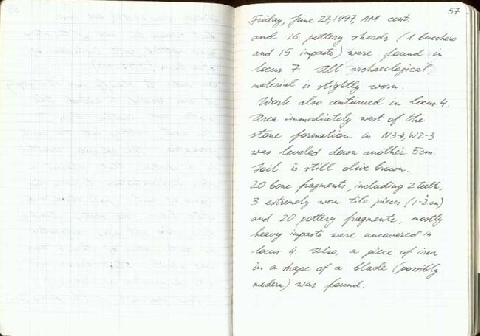 57
Friday, June 27, 1997, AM cont.
and 16 pottery sherds (1 bucchero
and 15 impasto) were found in
locus 7. All archaeological
material is slightly worn.
Work also continued in locus 4.
Area immediately west of the
stone formation in N3-4, W2-3
was leveled down another 5cm.
Soil is still olive brown.
20 bone fragments, including 2 teeth,
3 extremely worn tile pieces (1-2cm)
and 20 pottery fragments, mostly
heavy impasto were uncovered in
locus 4. Also, a piece of iron
in a shape of a blade (possibly
modern) was found.